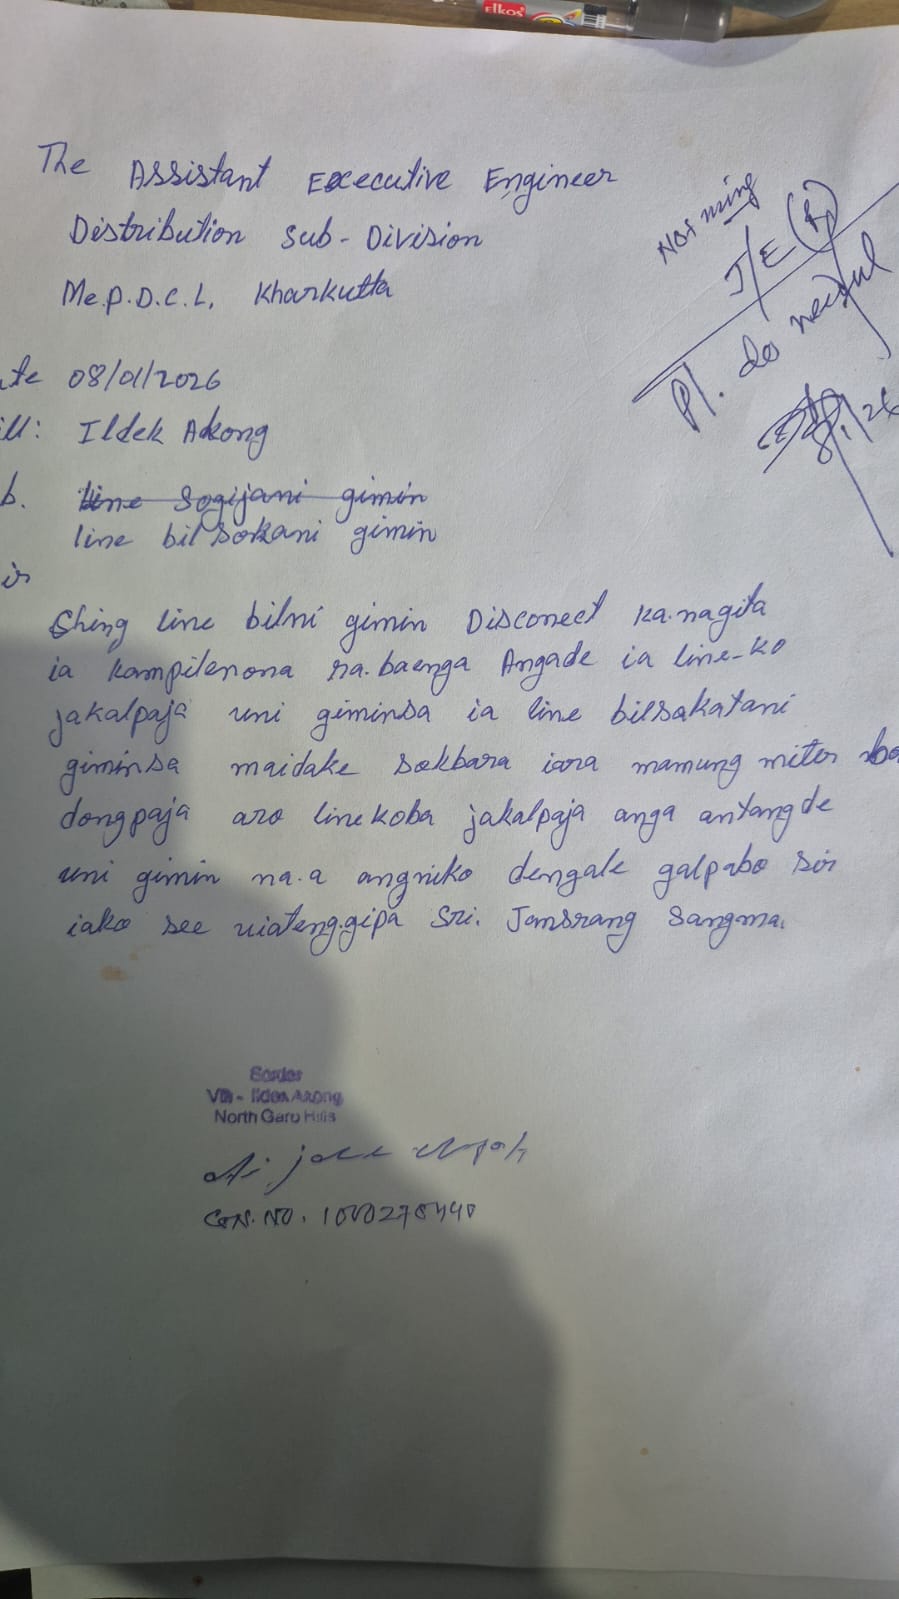 Elkos
The Assistant Executive Engineer
Distribution Sub-Division
Me.P.D.C.L. Kharkutta
Not ming
J/E (R)
Pl. do needful
8/1/26
ate 08/01/2026
ill: Ildek Akong
b. line Sogijani gimin
line bilsokani gimin
ir
Ching line bilni gimin Disconect ka.nagita
ia kampilenona ra.baenga Angade ia line-ko
jakalpaja uni giminsa ia line bilsakatani
giminsa maidake sokbara iara mamung miter
dongpaja aro linekoba jakalpaja anga antangde
uni gimin na.a angniko dengale galpabo sir
iako see watenggipa Sri. Jansrang Sangma.
Sordar
Vill - Ildek Akong
North Garo Hills
Con. No. 1000278440